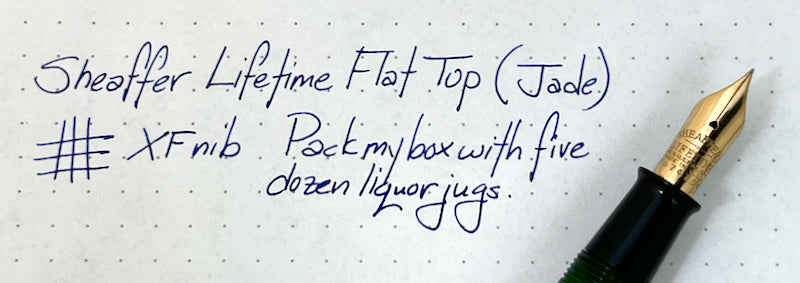 Sheaffer Lifetime Flat Top (Jade)
XF nib Pack my box with five
dozen liquor jugs.
SHEAFFER'S
LIFETIME